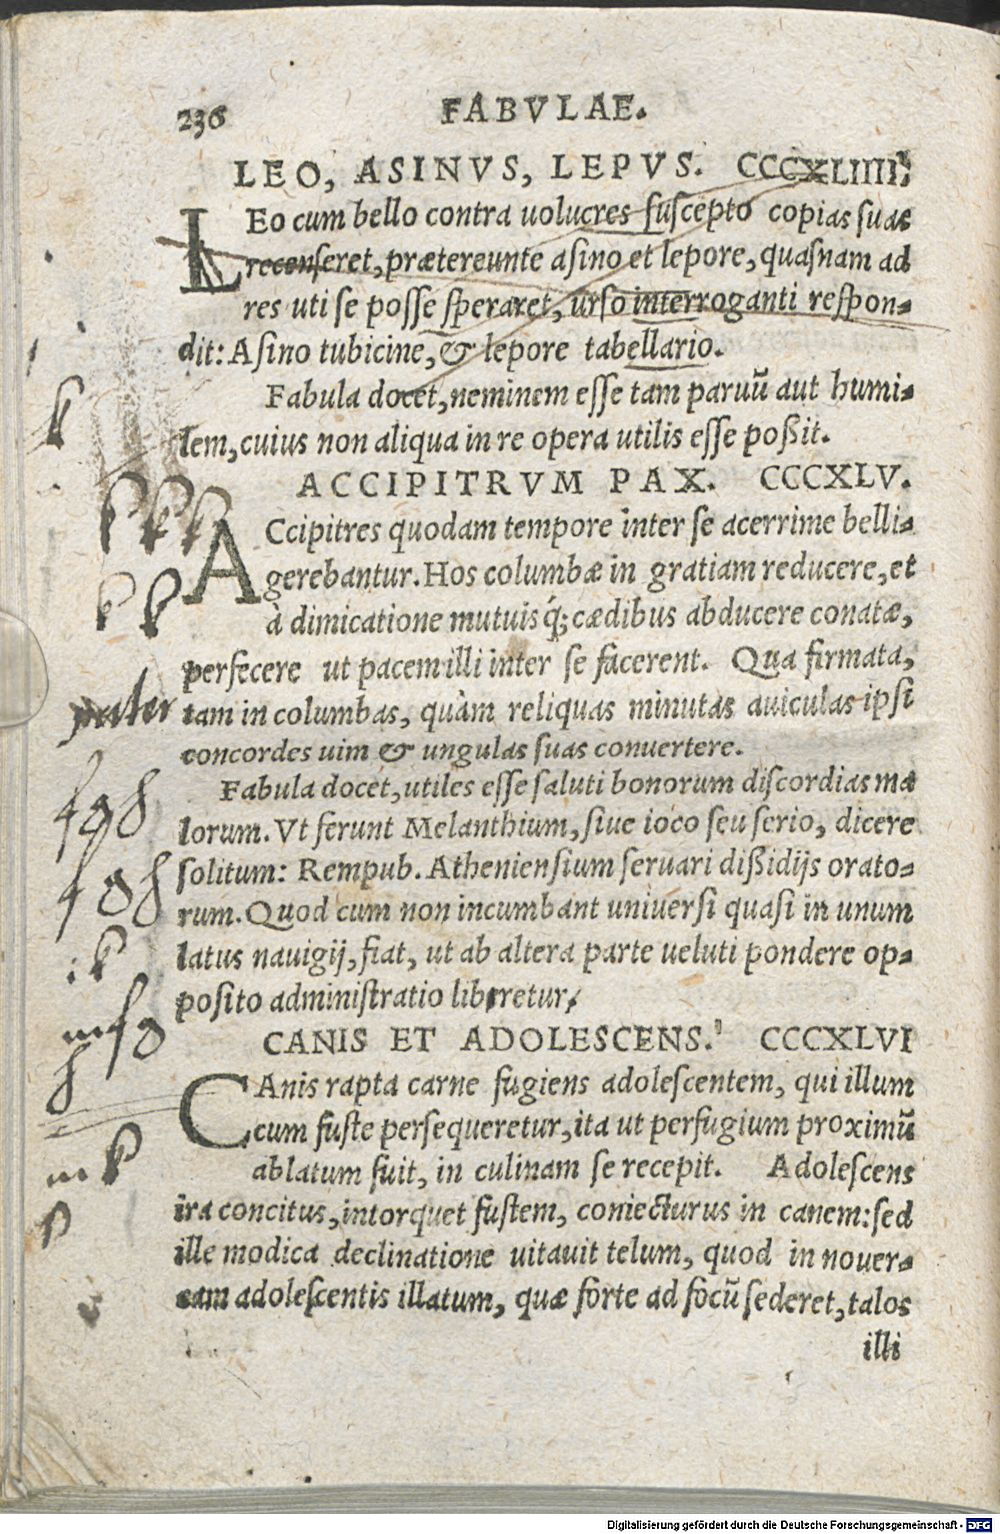 236 FABVLAE.
LEO, ASINVS, LEPVS. CCCXLIIII.
LEo cum bello contra uolucres suscepto copias suas
recenseret, prætereunte asino et lepore, quasnam ad
res uti se posse speraret, urso interroganti respon-
dit: Asino tubicine, & lepore tabellario.
Fabula docet, neminem esse tam paruū aut humi-
lem, cuius non aliqua in re opera utilis esse poßit.
ACCIPITRVM PAX. CCCXLV.
ACcipitres quodam tempore inter se acerrime belli-
gerebantur. Hos columbæ in gratiam reducere, et
à dimicatione mutuisq́; cædibus abducere conatæ,
perfecere ut pacem illi inter se facerent. Qua firmata,
tam in columbas, quàm reliquas minutas auiculas ipsi
concordes uim & ungulas suas conuertere.
Fabula docet, utiles esse saluti bonorum discordias ma
lorum. Vt ferunt Melanthium, siue ioco seu serio, dicere
solitum: Rempub. Atheniensium seruari dißidijs orato-
rum. Quod cum non incumbant uniuersi quasi in unum
latus nauigij, fiat, ut ab altera parte ueluti pondere op-
posito administratio liberetur.
CANIS ET ADOLESCENS. CCCXLVI
CAnis rapta carne fugiens adolescentem, qui illum
cum fuste persequeretur, ita ut perfugium proximū
ablatum fuit, in culinam se recepit. Adolescens
ira concitus, intorquet fustem, coniecturus in canem: sed
ille modica declinatione uitauit telum, quod in nouer-
cam adolescentis illatum, quæ forte ad focū sederet, talos
illi
Digitalisierung gefördert durch die Deutsche Forschungsgemeinschaft - DFG